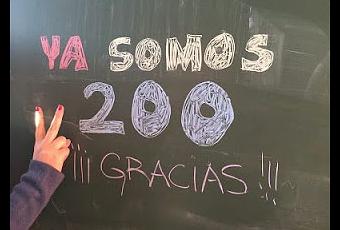 YA SOMOS
200
¡¡¡ GRACIAS !!!